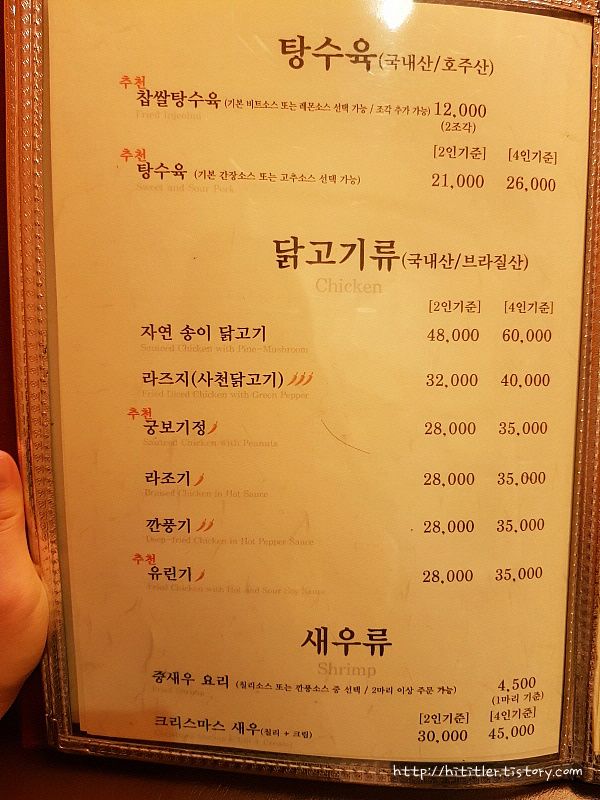 탕수육(국내산/호주산)
추천
찹쌀탕수육 (기본 비트소스 또는 레몬소스 선택 가능 / 조각 추가 가능) 12,000
(2조각)
[2인기준] [4인기준]
추천
탕수육 (기본 간장소스 또는 고추소스 선택 가능) 21,000 26,000
Sweet and Sour Pork
닭고기류(국내산/브라질산)
Chicken
[2인기준] [4인기준]
자연 송이 닭고기 48,000 60,000
Sauteed Chicken with Pine-Mushroom
라즈지(사천닭고기) 32,000 40,000
Fried Diced Chicken with Green Pepper
추천
궁보기정 28,000 35,000
Sauteed Chicken with Peanuts
라조기 28,000 35,000
Braised Chicken in Hot Sauce
깐풍기 28,000 35,000
Deep-fried Chicken in Hot Pepper Sauce
추천
유린기 28,000 35,000
Fried Chicken with Hot and Sour Soy Sauce
새우류
Shrimp
중새우 요리 (칠리소스 또는 깐풍소스 중 선택 / 2마리 이상 주문 가능) 4,500
(1마리 기준)
[2인기준] [4인기준]
크리스마스 새우(칠리 + 크림) 30,000 45,000
http://hititler.tistory.com